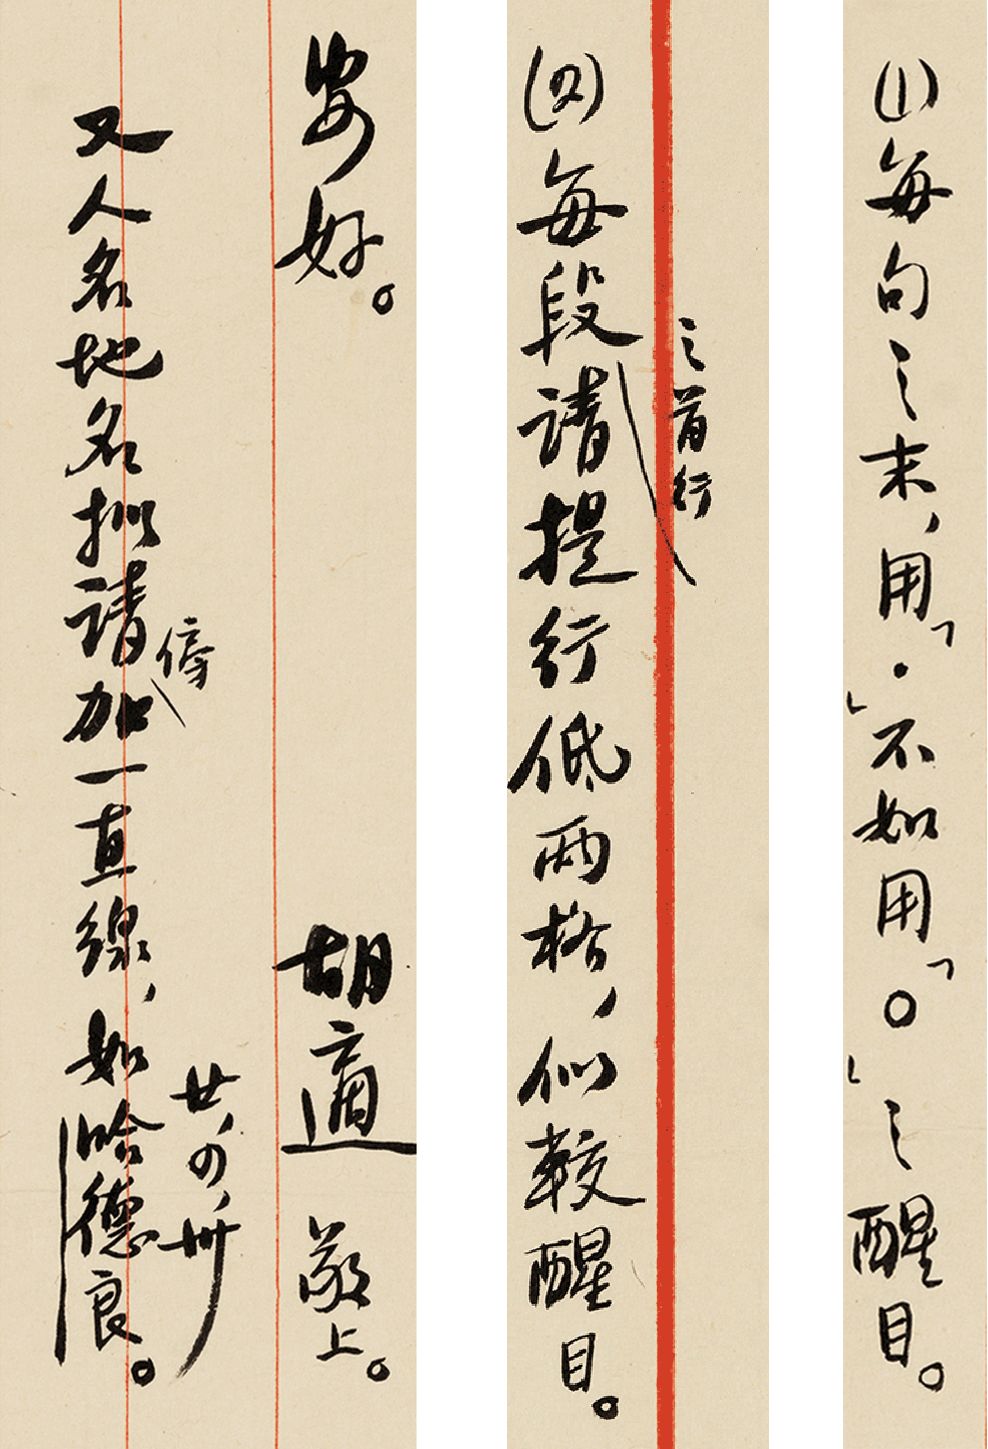 (1)每句之末，用「・」不如用「。」之醒目。
之首行
(四)每段請提行低兩格，似較醒目。
安好。
胡適 敬上。
廿，四，卅
傍
又人名地名擬請加一直線，如哈德良。